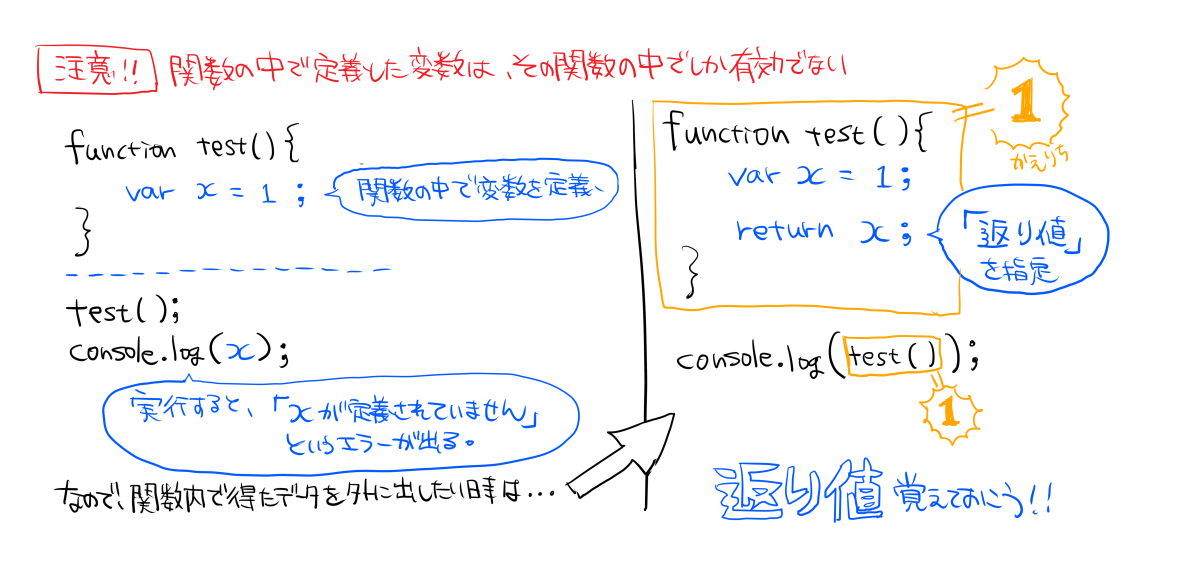 注意!! 関数の中で定義した変数は、その関数の中でしか有効でない
function test(){
var x = 1 ;
関数の中で変数を定義、
}
test();
console.log(x);
実行すると、「xが定義されていません」
というエラーが出る。
なので、関数内で得たデータを外に出したい時は...
function test(){
var x = 1;
return x;
}
1
かえりち
「返り値」
を指定
console.log(test());
1
返り値 覚えておこう!!